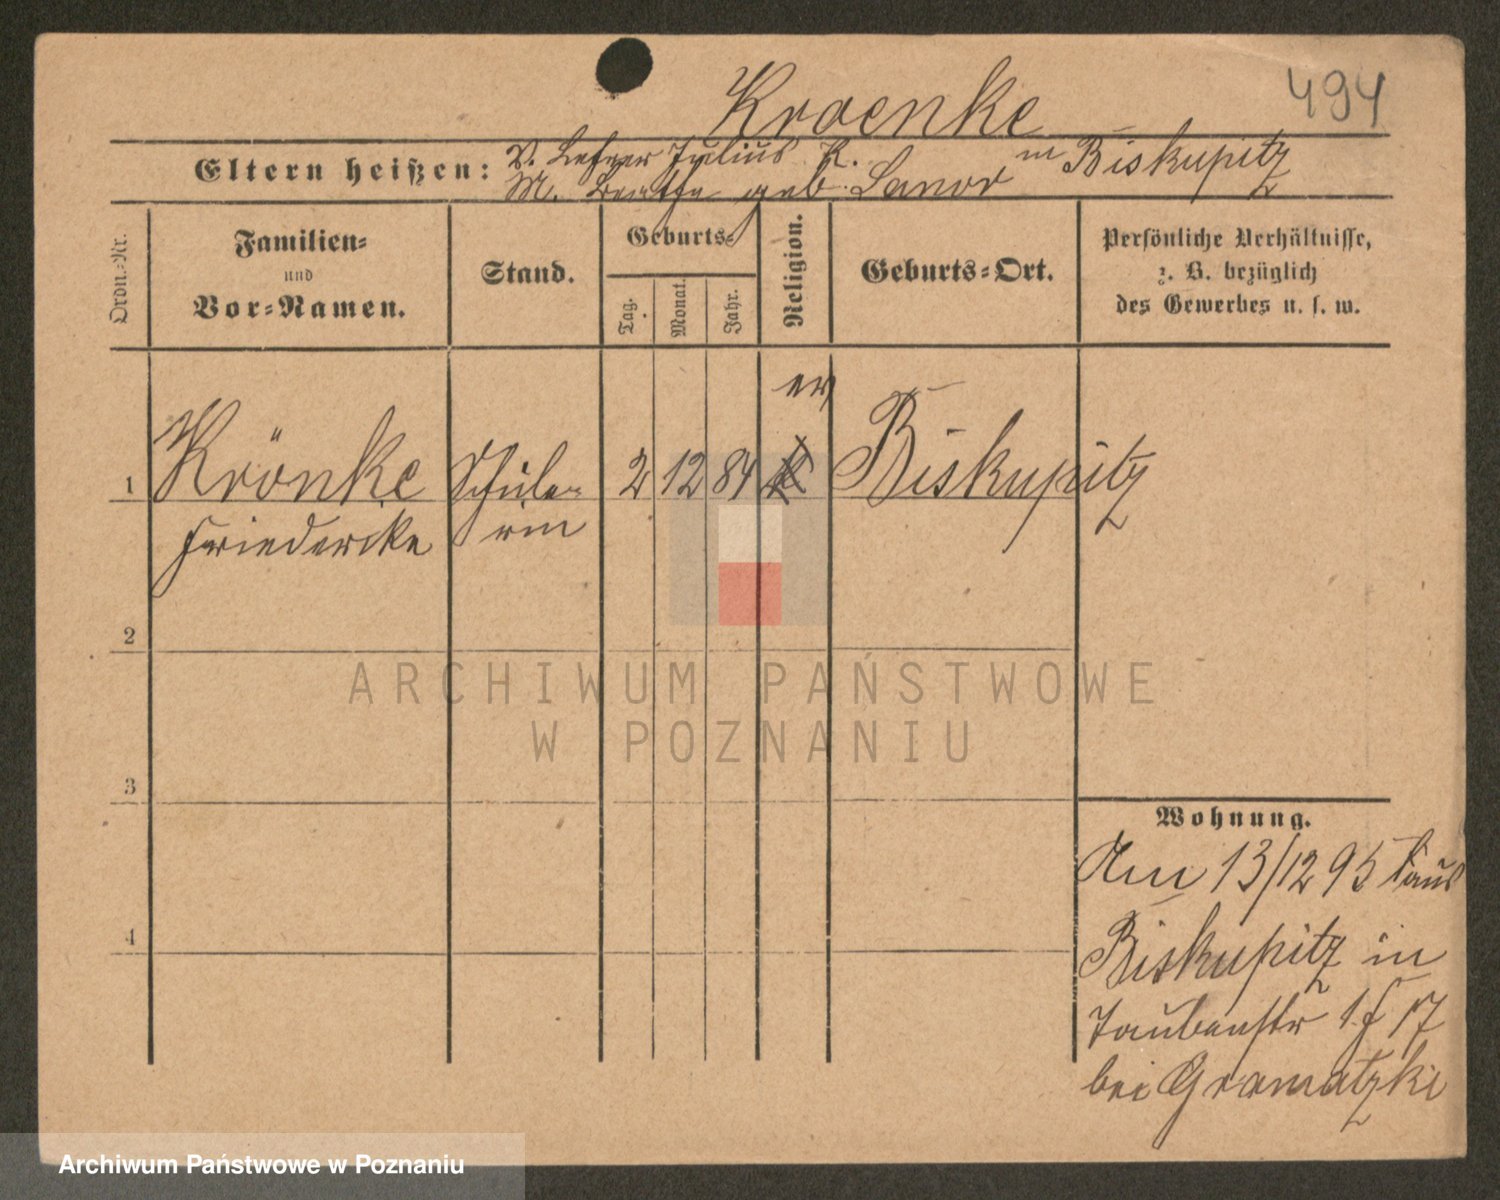 Kroenke
494
Eltern heißen:
V. Lehrer Julius K.
M. Bertha geb. Lanor
in Biskupitz
Ordn.-Nr.
Familien-
und
Vor-Namen.
Stand.
Geburts-
Tag.
Monat.
Jahr.
Religion.
Geburts-Ort.
Persönliche Verhältnisse,
z. B. bezüglich
des Gewerbes u. s. w.
ev
1
Krönke
Friedericke
Schüle-
rin
2
12
84
Biskupitz
2
3
4
ARCHIWUM PAŃSTWOWE
W POZNANIU
Wohnung.
Am 13/12 95 aus
Biskupitz in
Taubenstr 1. f 17
bei Gramatzki
Archiwum Państwowe w Poznaniu